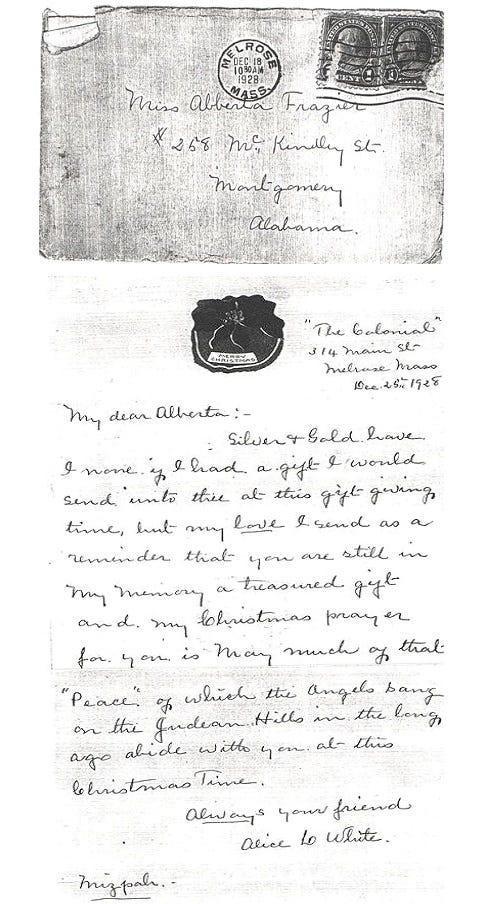 MELROSE
DEC 18
10 30 AM
1928
MASS.
Miss Alberta Frazier
# 258 McKindley St.
Montgomery
Alabama.
MERRY
CHRISTMAS
"The Colonial"
314 Main St
Melrose Mass
Dec. 25th 1928
My dear Alberta:-
Silver & Gold have
I none if I had a gift I would
send unto thee at this gift giving
time, but my love I send as a
reminder that you are still in
my memory a treasured gift
and my Christmas prayer
for you is May much of that
"Peace" of which the Angels sang
on the Judean Hills in the long
ago abide with you at this
Christmas Time.
Always your friend
Alice L White.
Mizpah.-